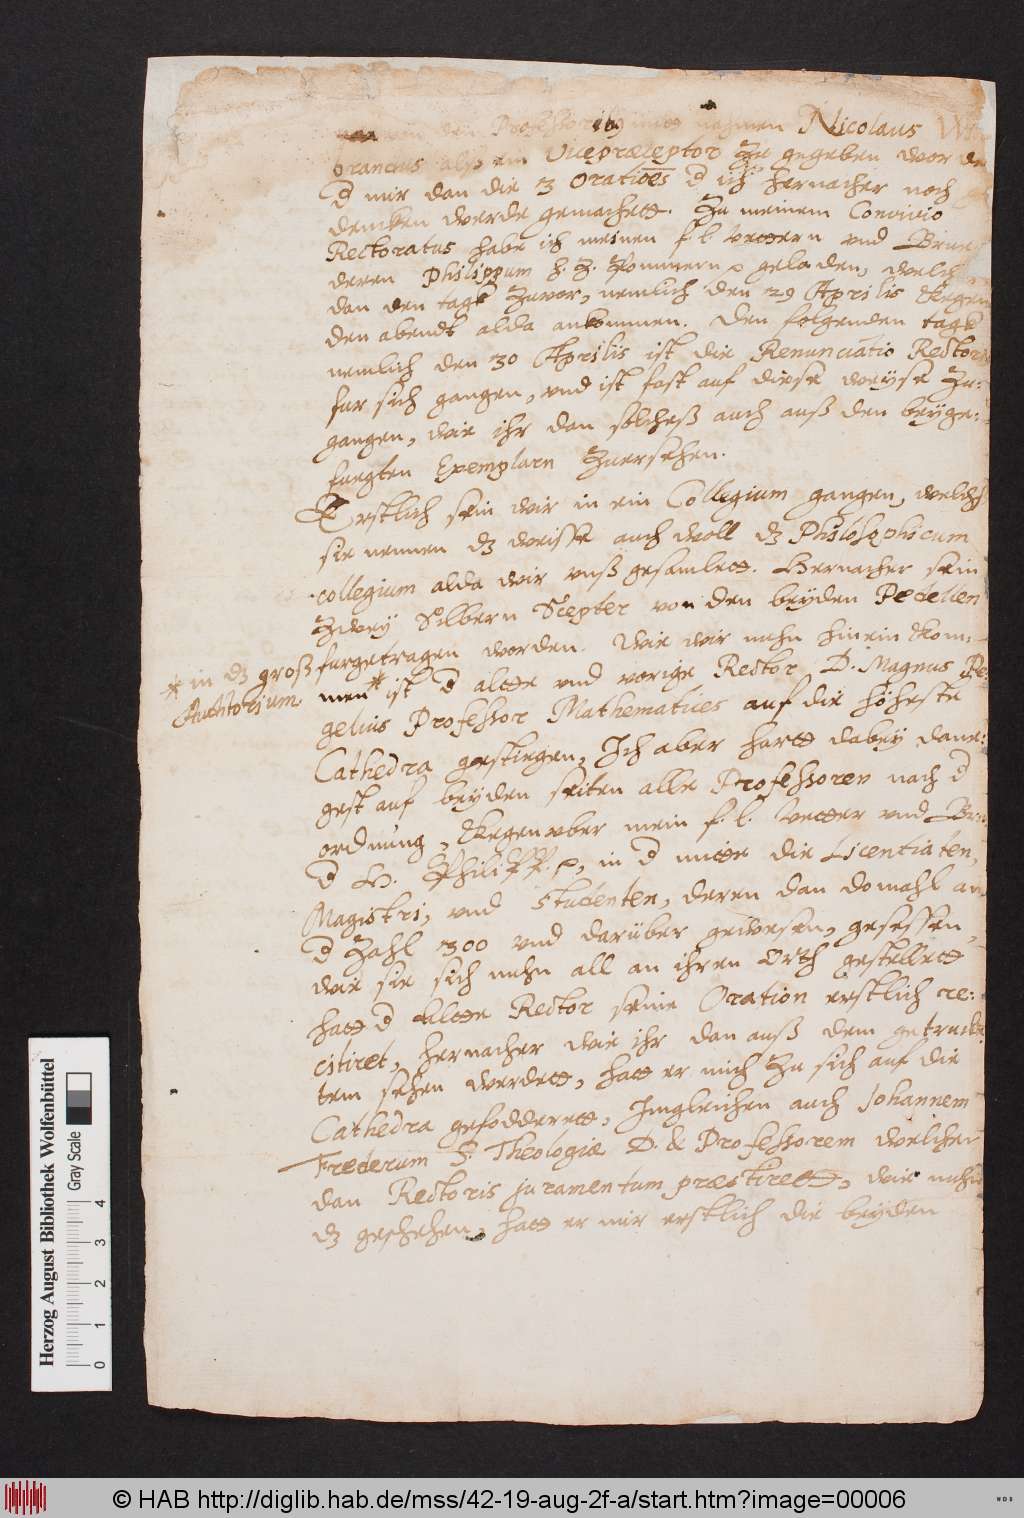 den Professoribus einer nahmen Nicolaus
brancius alß ein Vicepræceptor Zu gegeben worden
d mir dan die 3 Orationes d ich hernacher noch
dencken werde gemachett. Zu meinem Convivio
Rectoratus habe ich meinen f. l. Vettern vnd Brue
deren Philippum H. Z. Pommern geladen, welch
dan den tagk Zuvor, nemlich den 29 Aprilis kegen
den abendt alda ankommen. Den folgenden tagk
nemlich den 30 Aprilis ist die Renunciatio Rectoris
fur sich gangen, vnd ist fast auf diese weyse Zu-
gangen, wie ihr dan solcheß auch auß den beyge-
fuegten Exemplarn Zuersehen.
Erstlich sein wir in ein Collegium gangen, welchs
sie nennen dz weisse auch woll dz Philosophicum
collegium alda wir vnß gesamlett. Hernacher sein
Zwey Silbern Scepter von den beyden Pedellen
furgetragen worden. Wie wir nuhn hinein kom-
* in dz groß
Auditorium
men * ist d alte vnd vorige Rector D. Magnus Pe-
gelius Professor Mathematices auf die höheste
Cathedra gestiegen, Ich aber harte dabey dane-
gest auf beyden seiten alle Professoren nach d
ordnung, kegenuber mein f. l. Vetter vnd Bru
d H. Philipp. in d mitte die Licentiaten,
Magistri, vnd studenten, deren dan domahl an
d Zahl 300 vnd darüber gewesen, gesessen,
wie sie sich nuhn all an ihren Orth gestellett
hatt d alte Rector seine Oration erstlich re-
citiret, hernacher wie ihr dan auß dem getruck
tem sehen werdett, hatt er mich Zu sich auf die
Cathedra gefodderett, Imgleichen auch Johannem
Frederum S. Theologiæ D. & Professorem welcher
dan Rectoris juramentum præstirett, wie nuhn
dz geschehen, hatt er mir erstlich die beyden
Herzog August Bibliothek Wolfenbüttel
Gray Scale
0 1 2 3 4
© HAB http://diglib.hab.de/mss/42-19-aug-2f-a/start.htm?image=00006